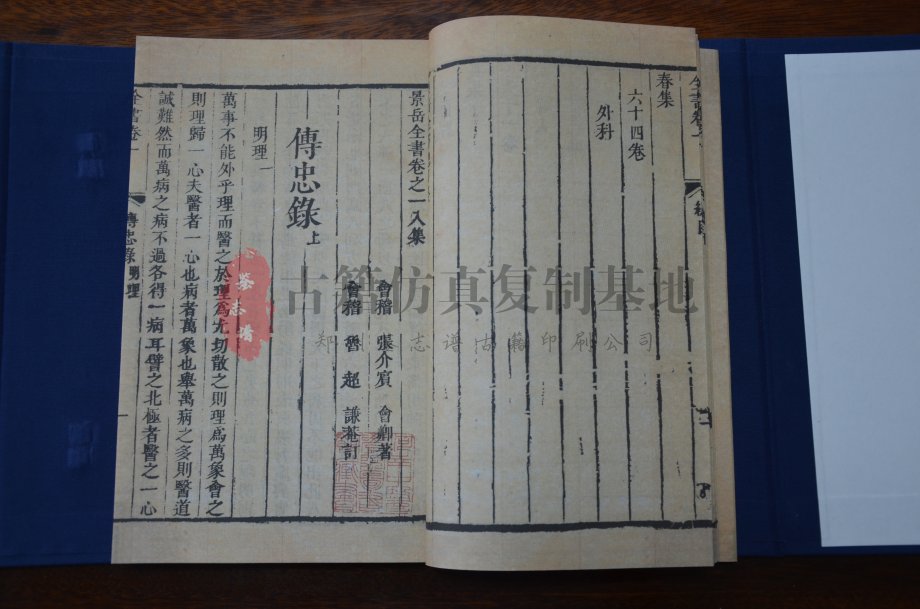 春集
六十四卷
外科
景岳全書卷之一入集
會稽 張介賓 會卿著
會稽 魯超 謙菴訂
傳忠錄上
明理一
萬事不能外乎理而醫之於理爲尤切散之則理爲萬象會之
則理歸一心夫醫者一心也病者萬象也舉萬病之多則醫道
誠難然而萬病之病不過各得一病耳譬之北極者醫之一心
全書卷一
傳忠錄 明理
古籍仿真复制基地
志谱古籍印刷公司